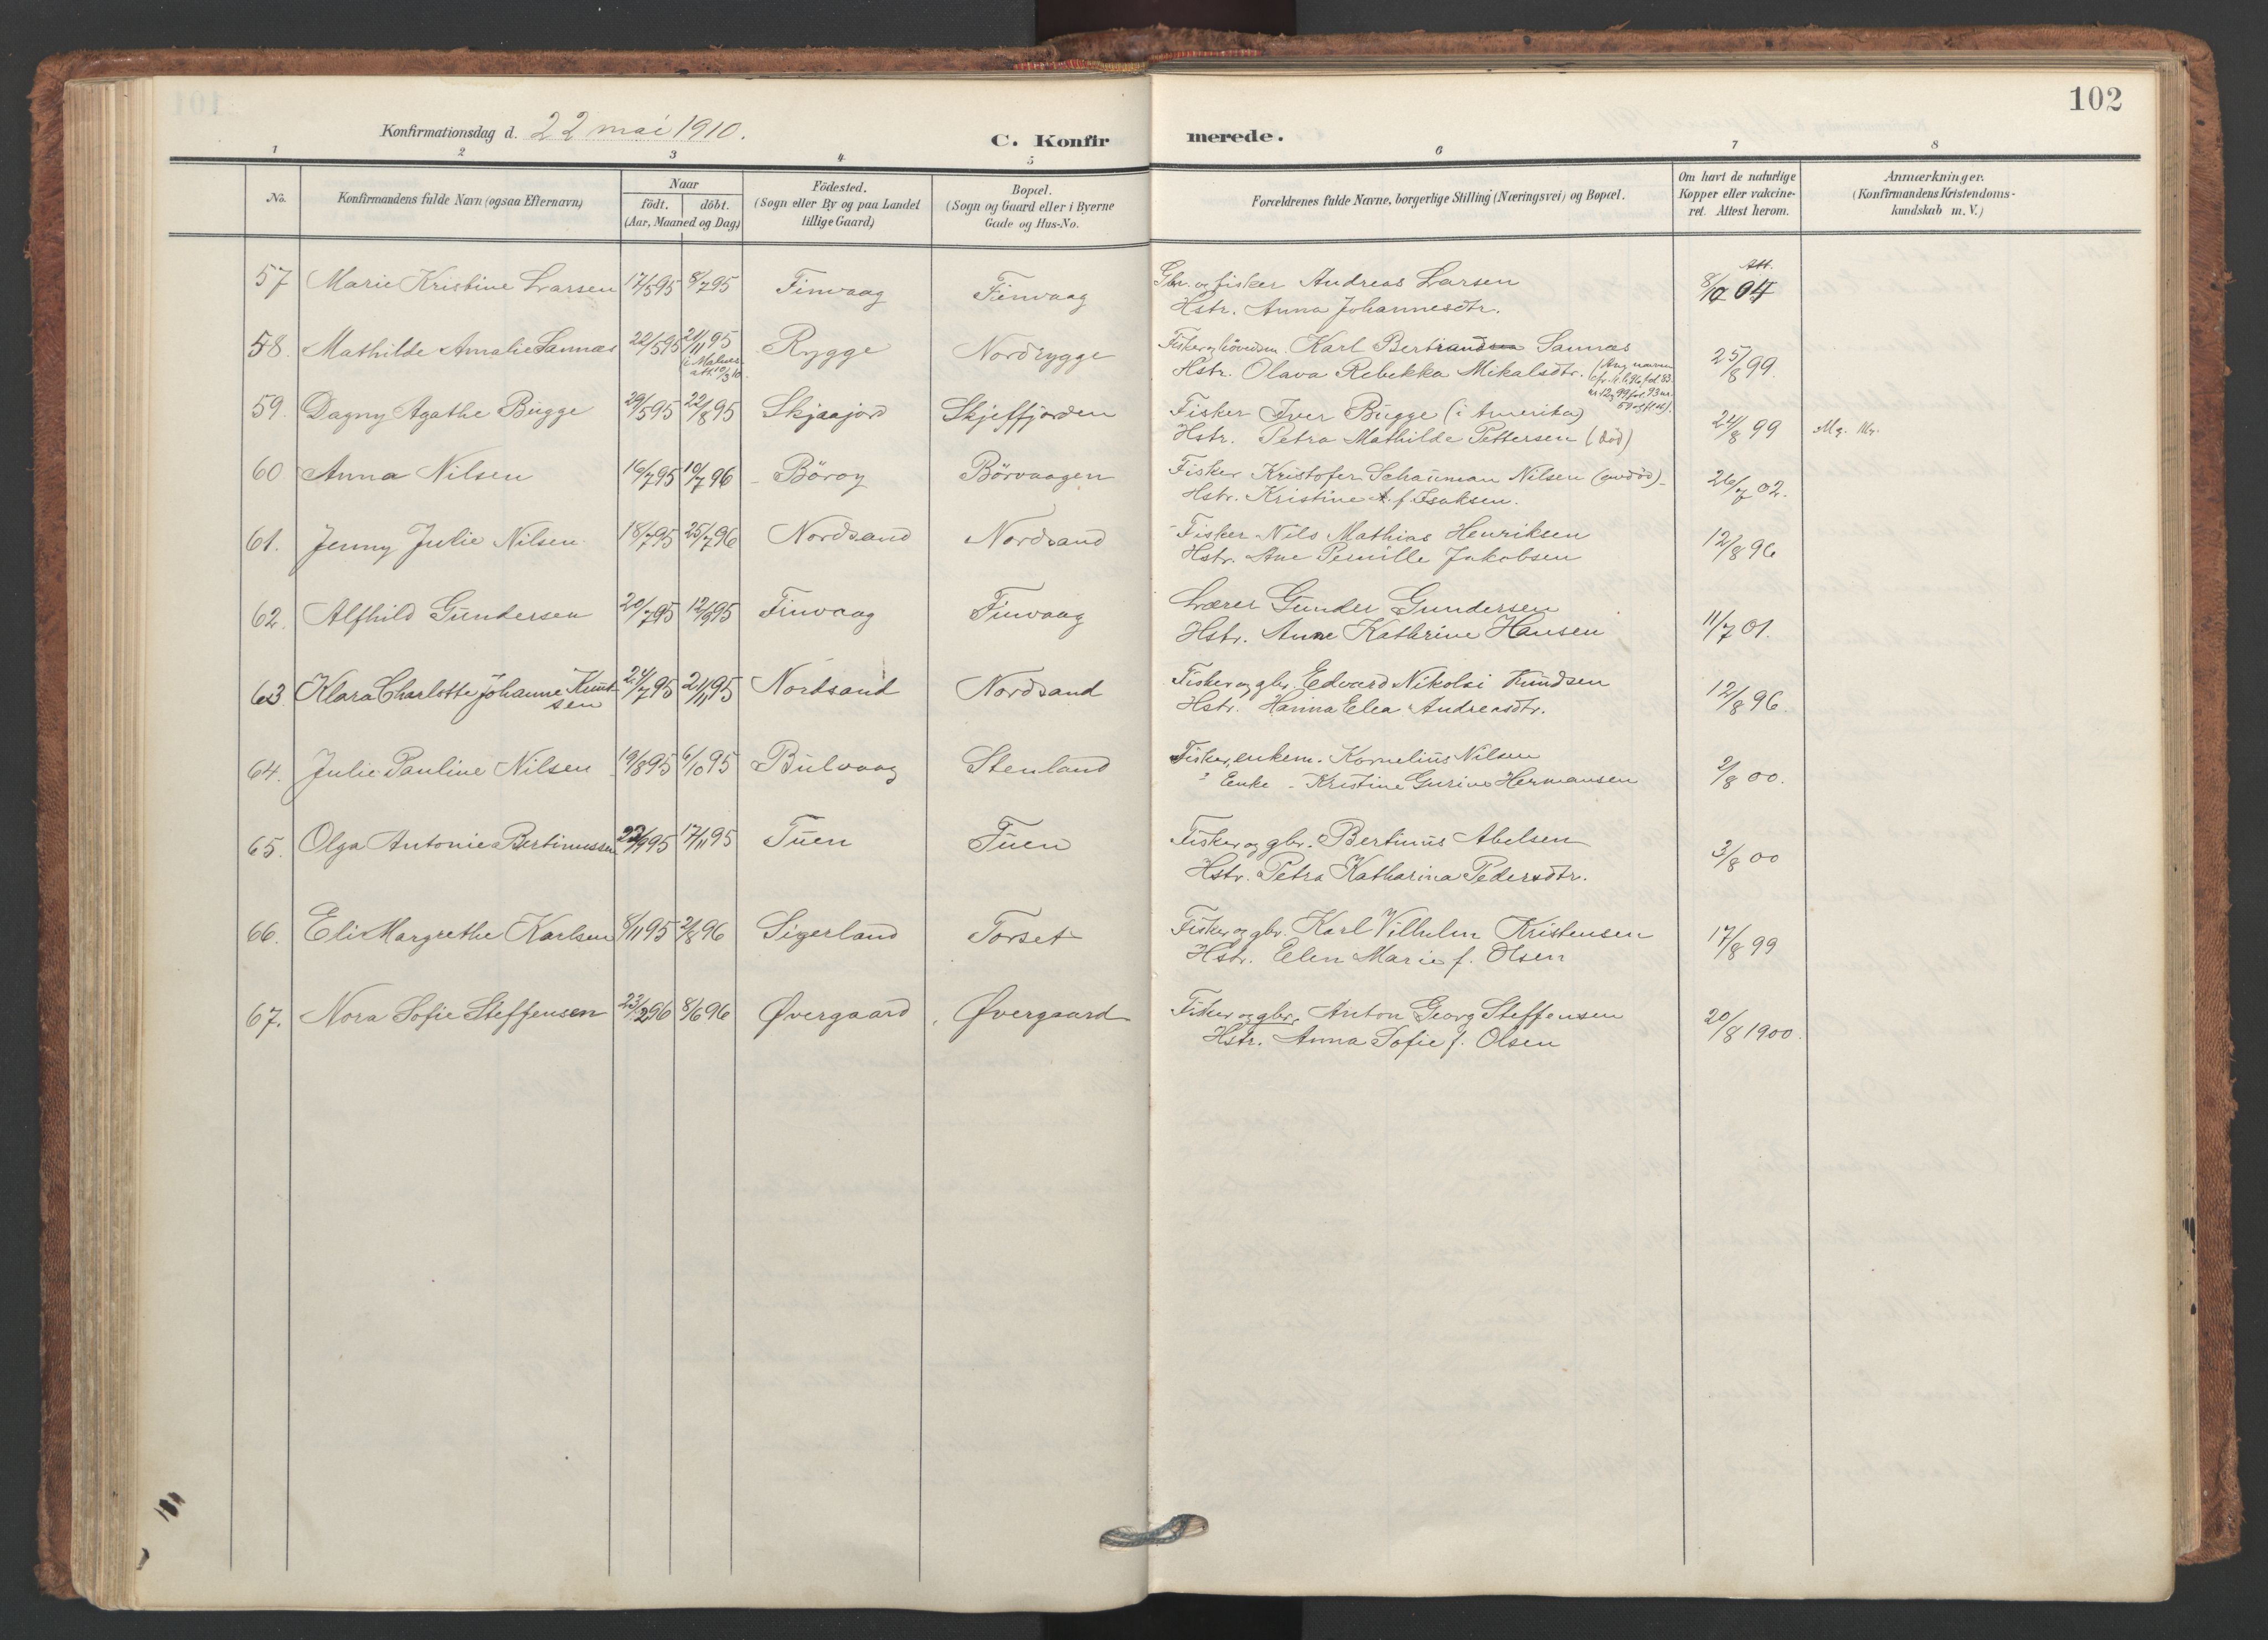 102
Konfirmationsdag d. 22 mai 1910.
C. Konfirmerede.
1 2 3 4 5 6 7 8
No. | Konfirmandens fulde Navn (ogsaa Efternavn) | Naar født. døbt. (Aar, Maaned og Dag) | Födested. (Sogn eller By og paa Landet tillige Gaard) | Bopæl. (Sogn og Gaard eller i Byerne Gade og Hus-No. | Forældrenes fulde Navne, borgerlige Stilling (Næringsvei) og Bopæl. | Om havt de naturlige Kopper eller vakcineret. Attest herom. | Anmærkninger. (Konfirmandens Kristendomskundskab m. V.)
57 Marie Kristine Larsen 17/5 95 8/7 95 Finvaag Finvaag Gbr. og fisker Andreas Larsen Att. 8/10 04
Hstr. Anna Johannesdtr.
58. Mathilde Amalie Sannas 22/5 95 21/11 95 Rygge Nordrygge Fisker og Karl Bertrand Sannas 25/8 99.
Hstr. Olava Rebekka Mikalsdtr.
59. Dagny Agathe Bugge 29/5 95 22/8 95 Skjaajord Skjeffjorden Fisker Iver Bugge (i Amerika) 24/8 99 Mg. Mg.
Hstr. Petra Mathilde Pettersen (död)
60 Anna Nilsen 16/7 95 10/7 96 Böröy Börvaagen Fisker Kristofer Schauman Nilsen 26/7 02.
Hstr. Kristine A. f. Isaksen.
61. Jenny Julie Nilsen 18/7 95 25/7 96 Nordsand Nordsand Fisker Nils Mathias Henriksen 12/8 96
Hstr. Ane Pernille Jakobsen
62. Alfhild Gundersen 20/7 95 12/9 95 Finvaag Finvaag Lærer Gunder Gundersen 11/7 01.
Hstr. Anne Kathrine Hansen
63. Klara Charlotte Johanne Knut 24/7 95 21/11 95 Nordsand Nordsand Fisker og gbr. Edvard Nikolai Knudsen 12/8 96.
sen Hstr. Hanna Elea Andreasdtr.
64. Julie Pauline Nilsen 19/8 95 6/10 95 Bulvaag Stenland Fisker, enkem. Kornelius Nilsen 2/8 00.
Enke - Kristine Gurine Hermansen
65. Olga Antonie Bertinussen 23/9 95 17/11 95 Tuen Tuen Fisker og gbr. Bertinus Abelsen 3/8 00
Hstr. Petra Katharina Pedersdtr.
66. Eli Margrethe Karlsen 8/11 95 2/8 96 Sigerland Torset Fisker og gbr. Karl Vilhelm Kristensen 17/8 99
Hstr. Elen Marie f. Olsen
67. Nora Sofie Steffensen 23/2 96 8/6 96 Øvergaard Øvergaard Fisker og gbr. Anton Georg Steffensen 20/8 1900.
Hstr. Anna Sofie f. Olsen